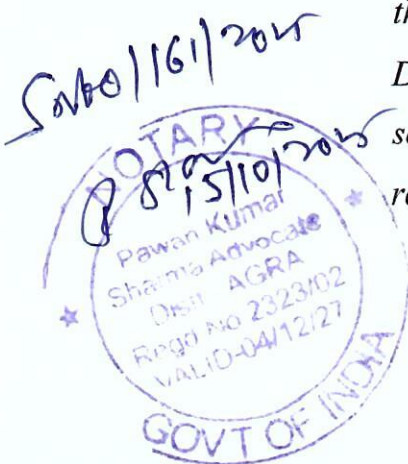 th
D
se
re
NOTARY
15/10/2025
Pawan Kumar
Sharma Advocate
Distt. AGRA
Regd No 2323/02
VALID-04/12/27
GOVT OF INDIA